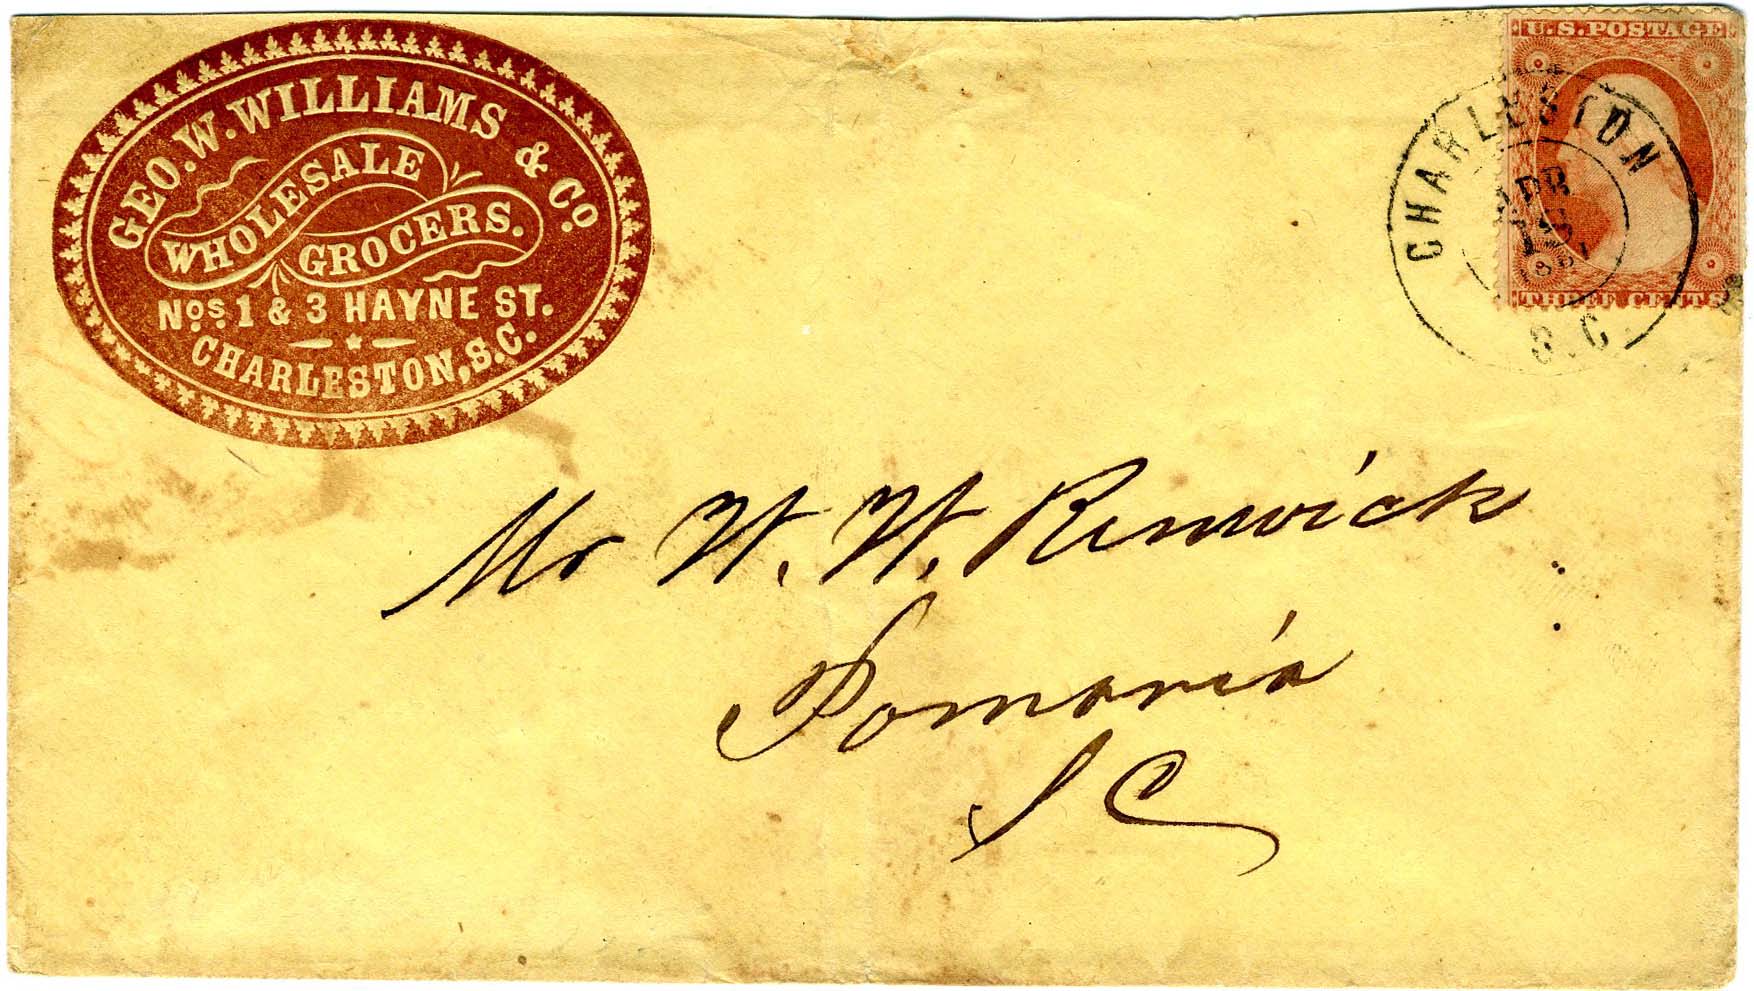 GEO. W. WILLIAMS & Co.
WHOLESALE
GROCERS.
Nos. 1 & 3 HAYNE ST.
CHARLESTON, S.C.
U.S. POSTAGE
THREE CENTS
CHARLESTON
APR
S.C
Mr W. W. Renwick
Pomaria
S C